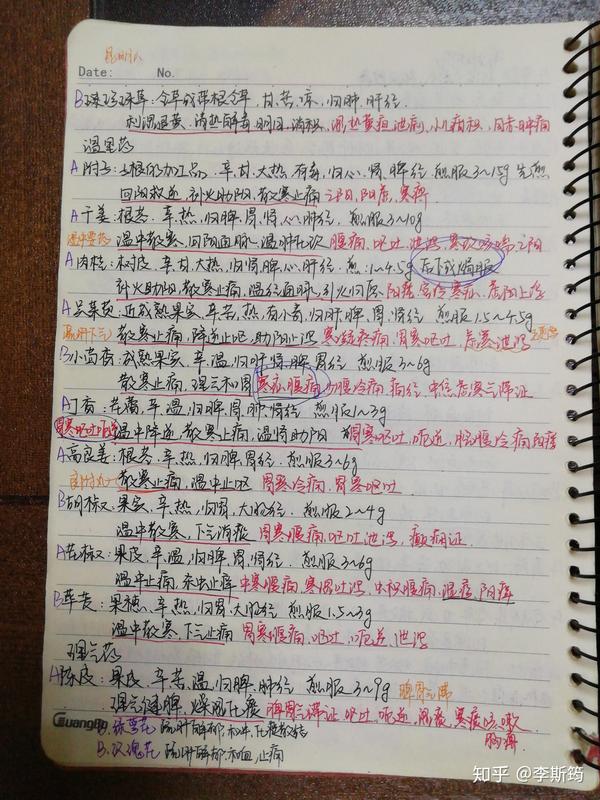 Date: No.
B 珍珠草:全草或带根全草 甘、苦、凉,归肺、肝经
利湿退黄,清热解毒,明目,消积 湿热黄疸,泄痢,小儿疳积,目赤肿痛
温里药
A 附子:子根的加工品,辛、甘,大热,有毒,归心、肾、脾经 煎服3~15g 先煎
回阳救逆,补火助阳,散寒止痛 亡阳,阳虚,寒痹
A 干姜:根茎,辛,热,归脾、胃、肾、心、肺经 煎服3~10g
温中散寒,回阳通脉,温肺化饮 腹痛,呕吐,泄泻,寒饮咳喘,亡阳
A 肉桂:树皮,辛、甘,大热,归肾、脾、心、肝经 煎:1~4.5g 后下或焗服
补火助阳,散寒止痛,温经通脉,引火归原 阳痿,宫冷,寒疝,虚阳上浮
A 吴茱萸:近成熟果实,辛、苦,热,有小毒,归肝、脾、胃、肾经 煎服1.5~4.5g
散寒止痛,降逆止呕,助阳止泻 寒疝疼痛,胃寒呕吐,虚寒泄泻
B 小茴香:成熟果实,辛,温,归肝、肾、脾、胃经 煎服3~6g
散寒止痛,理气和胃 寒疝腹痛,冷痛,痛经,中焦虚寒气滞证
A 丁香:花蕾,辛,温,归脾、胃、肺、肾经 煎服1~3g
胃寒呕吐呃逆 温中降逆,散寒止痛,温肾助阳 胃寒呕吐,呃逆,脘腹冷痛,阳痿
A 高良姜:根茎,辛,热,归脾、胃经 煎服3~6g
良附丸 散寒止痛,温中止呕 胃寒冷痛,胃寒呕吐
B 胡椒:果实,辛,热,归胃、大肠经 煎服2~4g
温中散寒,下气消痰 胃寒腹痛,呕吐泄泻,癫痫证
A 花椒:果皮,辛,温,归脾、胃、肾经 煎服3~6g
温中止痛,杀虫止痒 中寒腹痛,寒湿吐泻,虫积腹痛,湿疹,阴痒
B 荜茇:果穗,辛,热,归胃、大肠经 煎服1.5~3g
温中散寒,下气止痛 胃寒腹痛,呕吐,呃逆,泄泻
理气药
A 陈皮:果皮,辛、苦,温,归脾、肺经 煎服3~9g
理气健脾,燥湿化痰 脾胃气滞证,呕吐,呃逆,湿痰,寒痰咳嗽,
胸痹
GuangBo
B. 绿萼花 疏肝解郁,和中,化痰散结
B. 玫瑰花 疏肝解郁,和血,止痛
知乎 @李斯筠